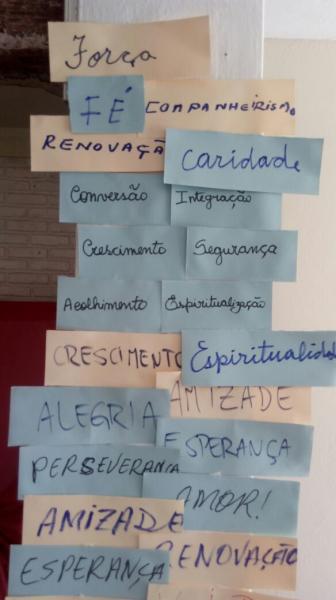 Força
FÉ COMPANHEIRISMO
RENOVAÇÃ
Caridade
Conversão Integração
Crescimento Segurança
Acolhimento Espiritualização
CRESCIMENTO Espiritualidad
AMIZADE
ALEGRIA
ESPERANÇA
PERSEVERANÇA
AMOR!
AMIZADE
RENOVAÇÃO
ESPERANÇA